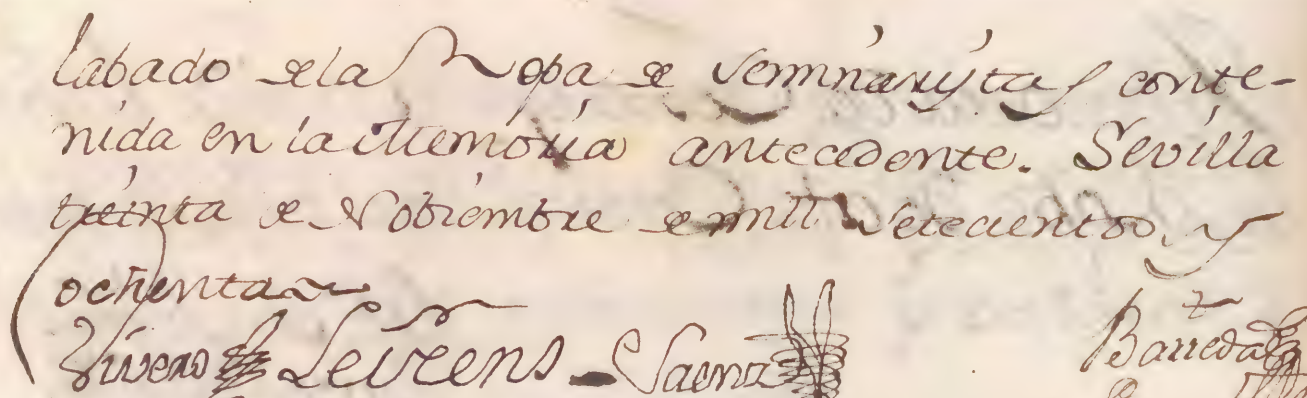 labado de la Ropa de Seminaristas conte-
nida en la Memoria antecedente. Sevilla
treinta de Nobiembre de mill Setecientos, y
ochenta
Vivero Leirens - Saenz Barreda